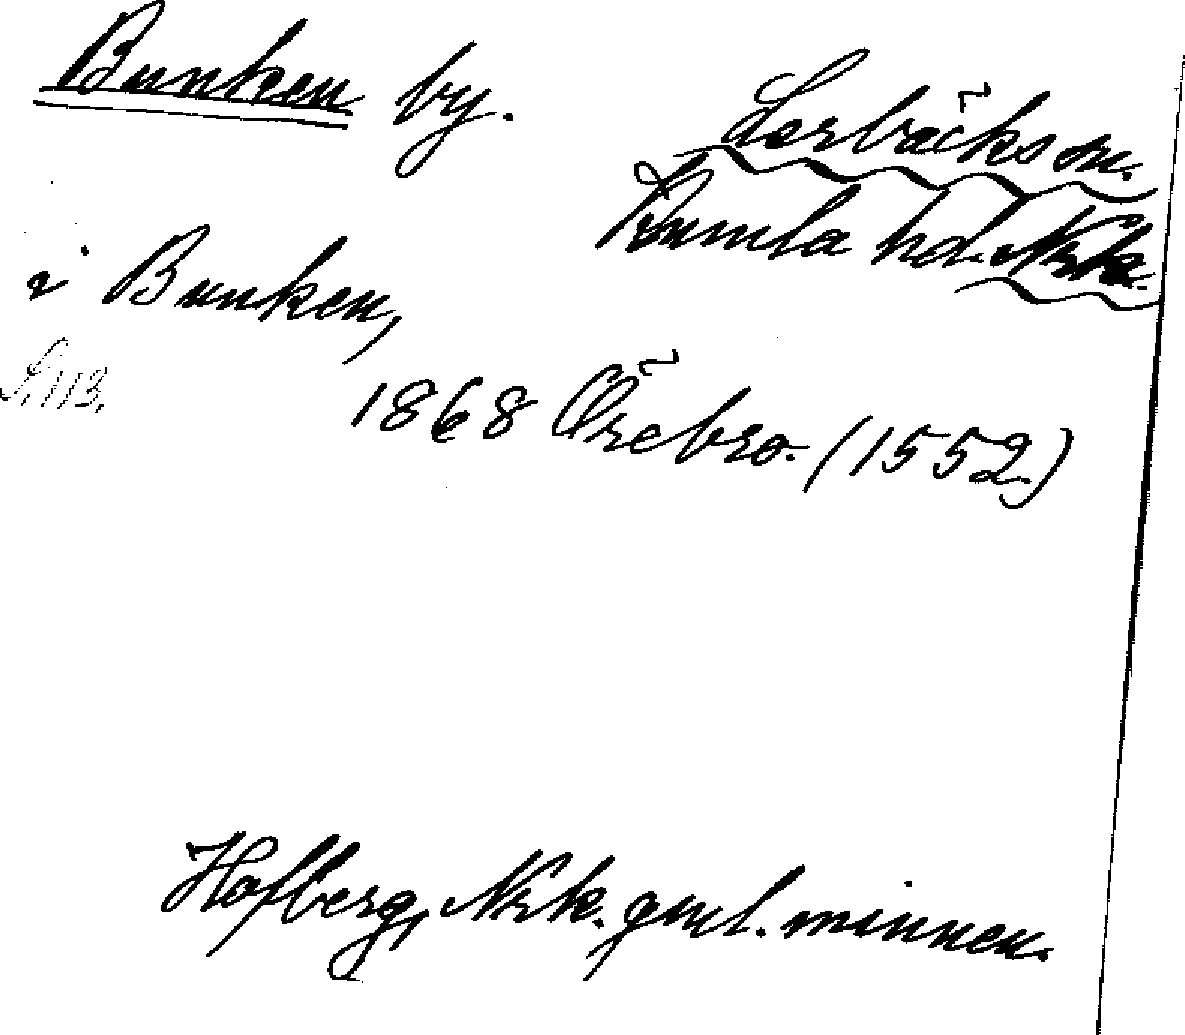 Bunken by.
Lerbäcks sn.
Kumla hd. Nrke.
i Bunken,
S. 113.
1868 Örebro. (1552)
Hofberg, Nrk. gml. minnen.